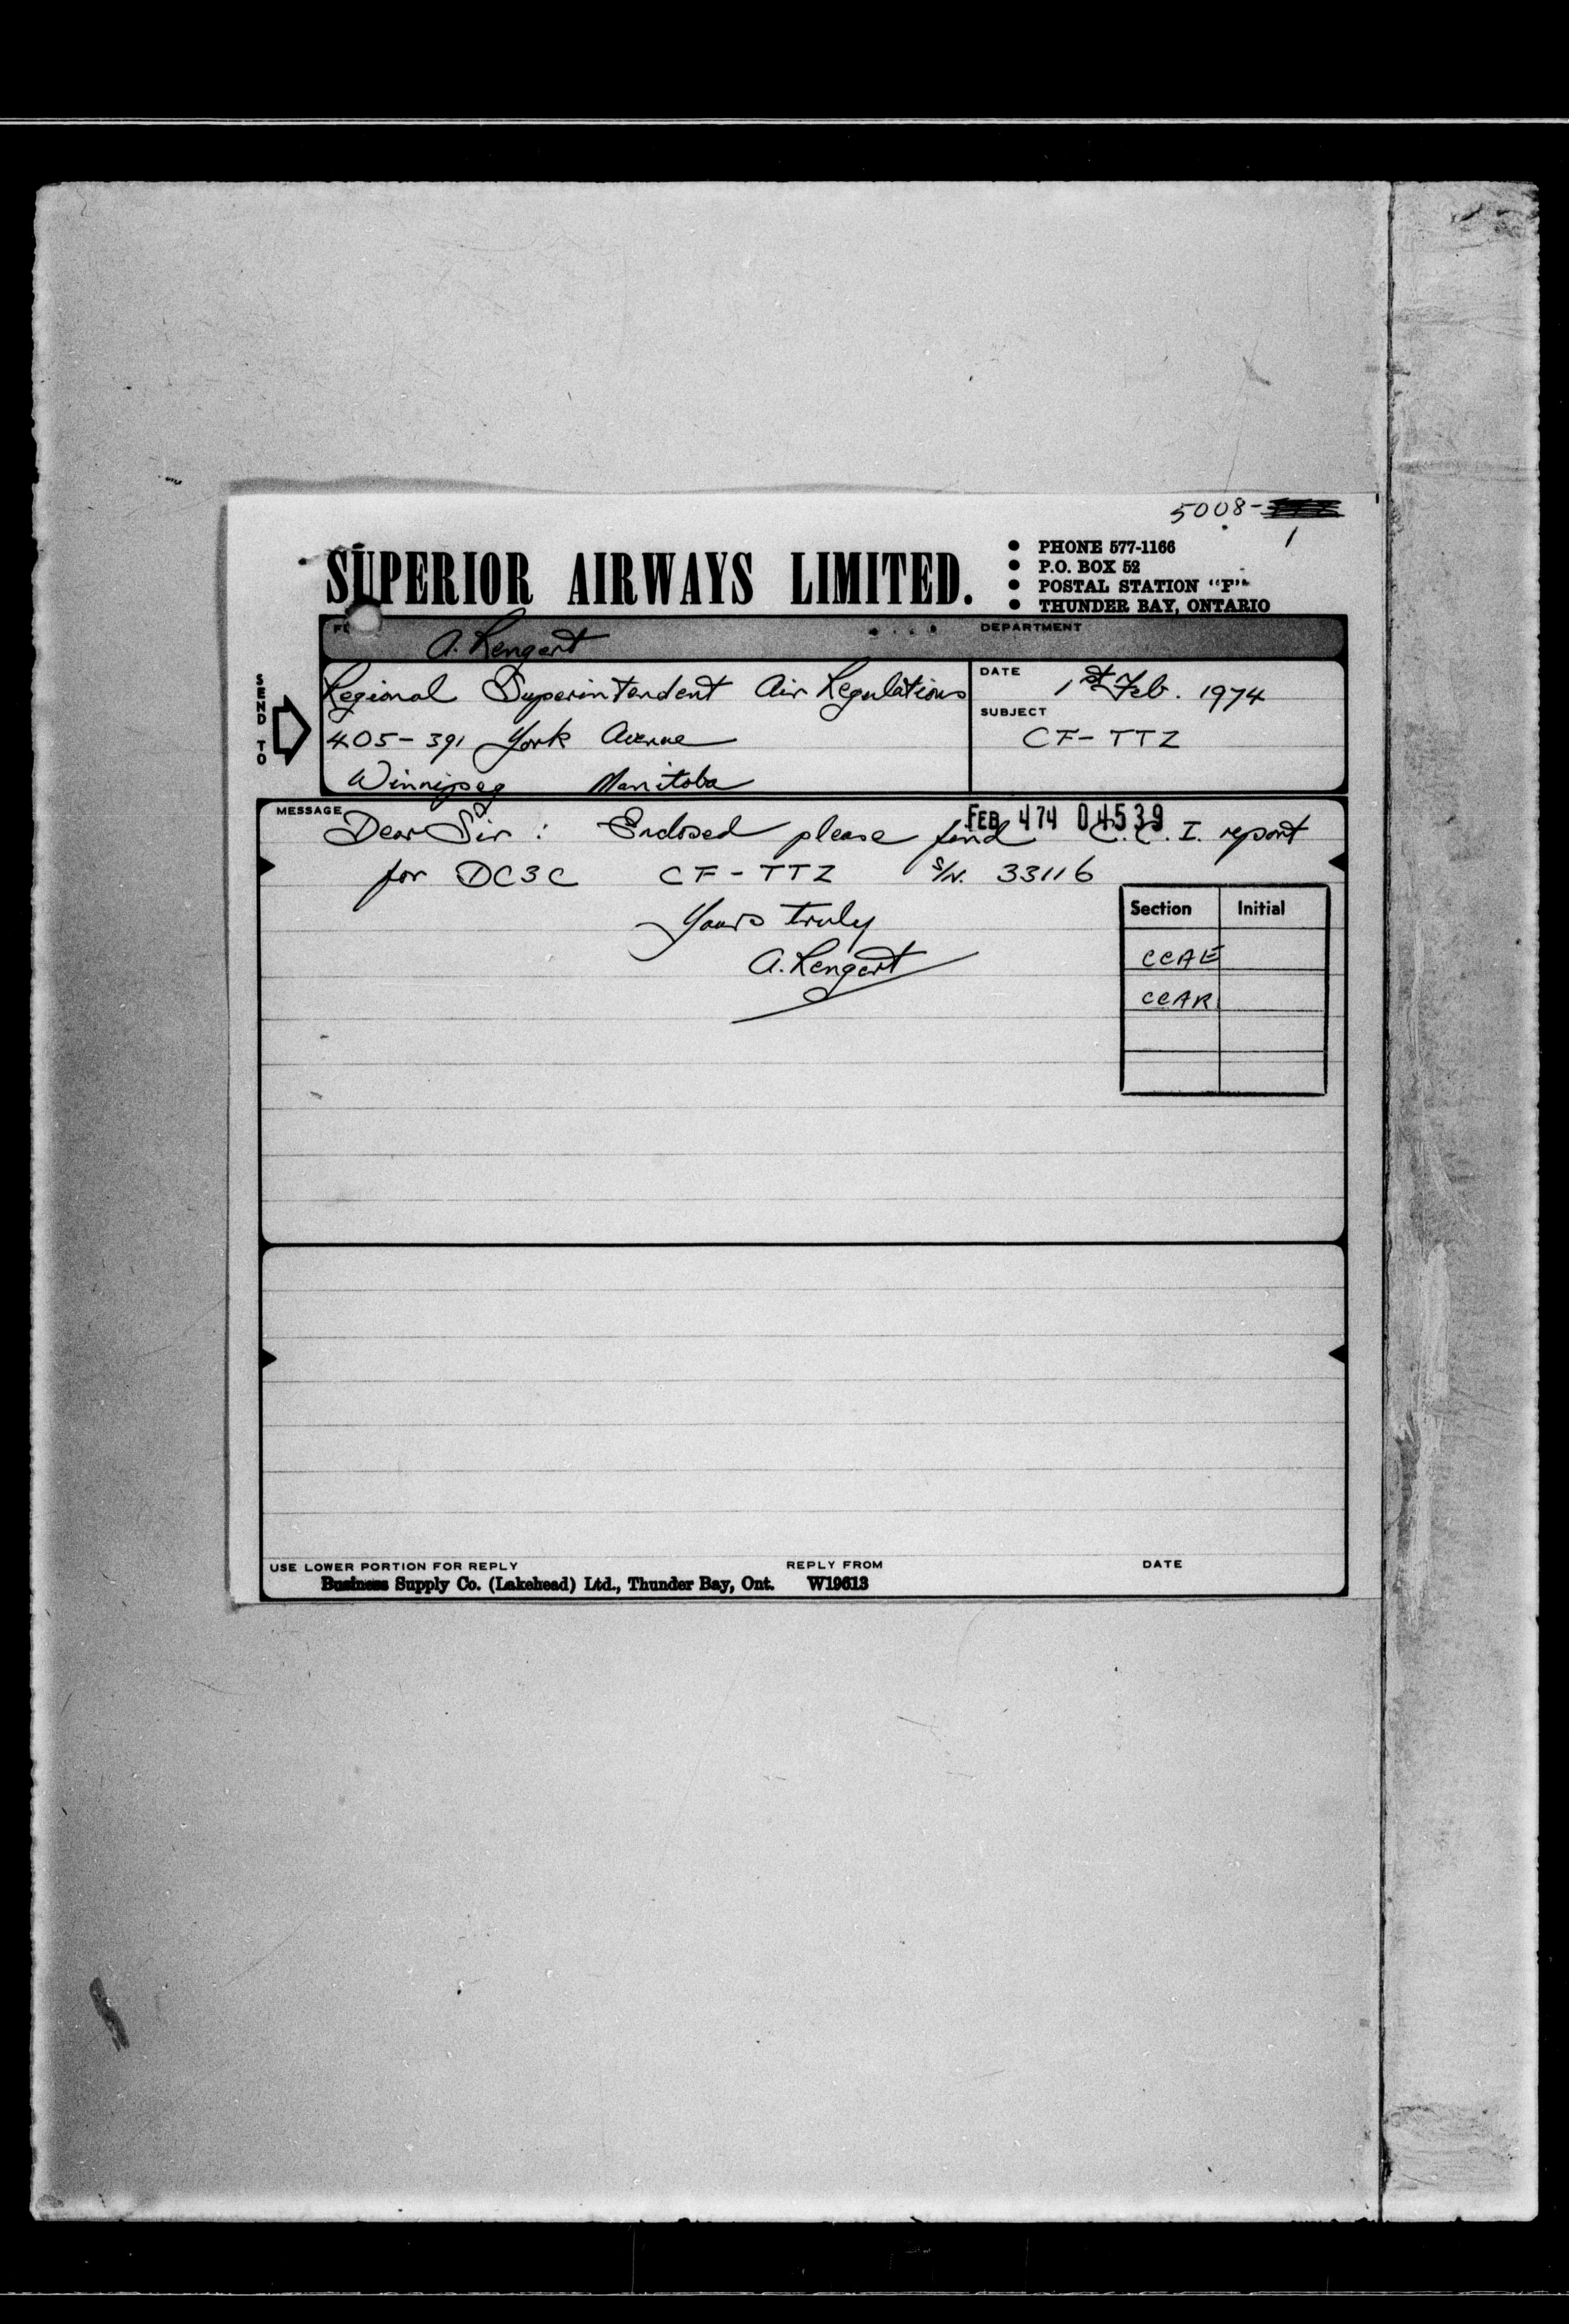 5008-
1
SUPERIOR AIRWAYS LIMITED.
• PHONE 577-1166
• P.O. BOX 52
• POSTAL STATION "F"
• THUNDER BAY, ONTARIO
A. Rengert
DEPARTMENT
SEND TO
Regional Superintendent Air Regulations
405-391 York Avenue
Winnipeg Manitoba
DATE 1st Feb. 1974
SUBJECT
CF-TTZ
MESSAGE
FEB 474 04539
Dear Sir : Enclosed please find C.C.I. report
for DC3C CF-TTZ S/N. 33116
Yours truly
A. Rengert
Section Initial
CCAE
CCAR
USE LOWER PORTION FOR REPLY REPLY FROM DATE
Business Supply Co. (Lakehead) Ltd., Thunder Bay, Ont. W19613